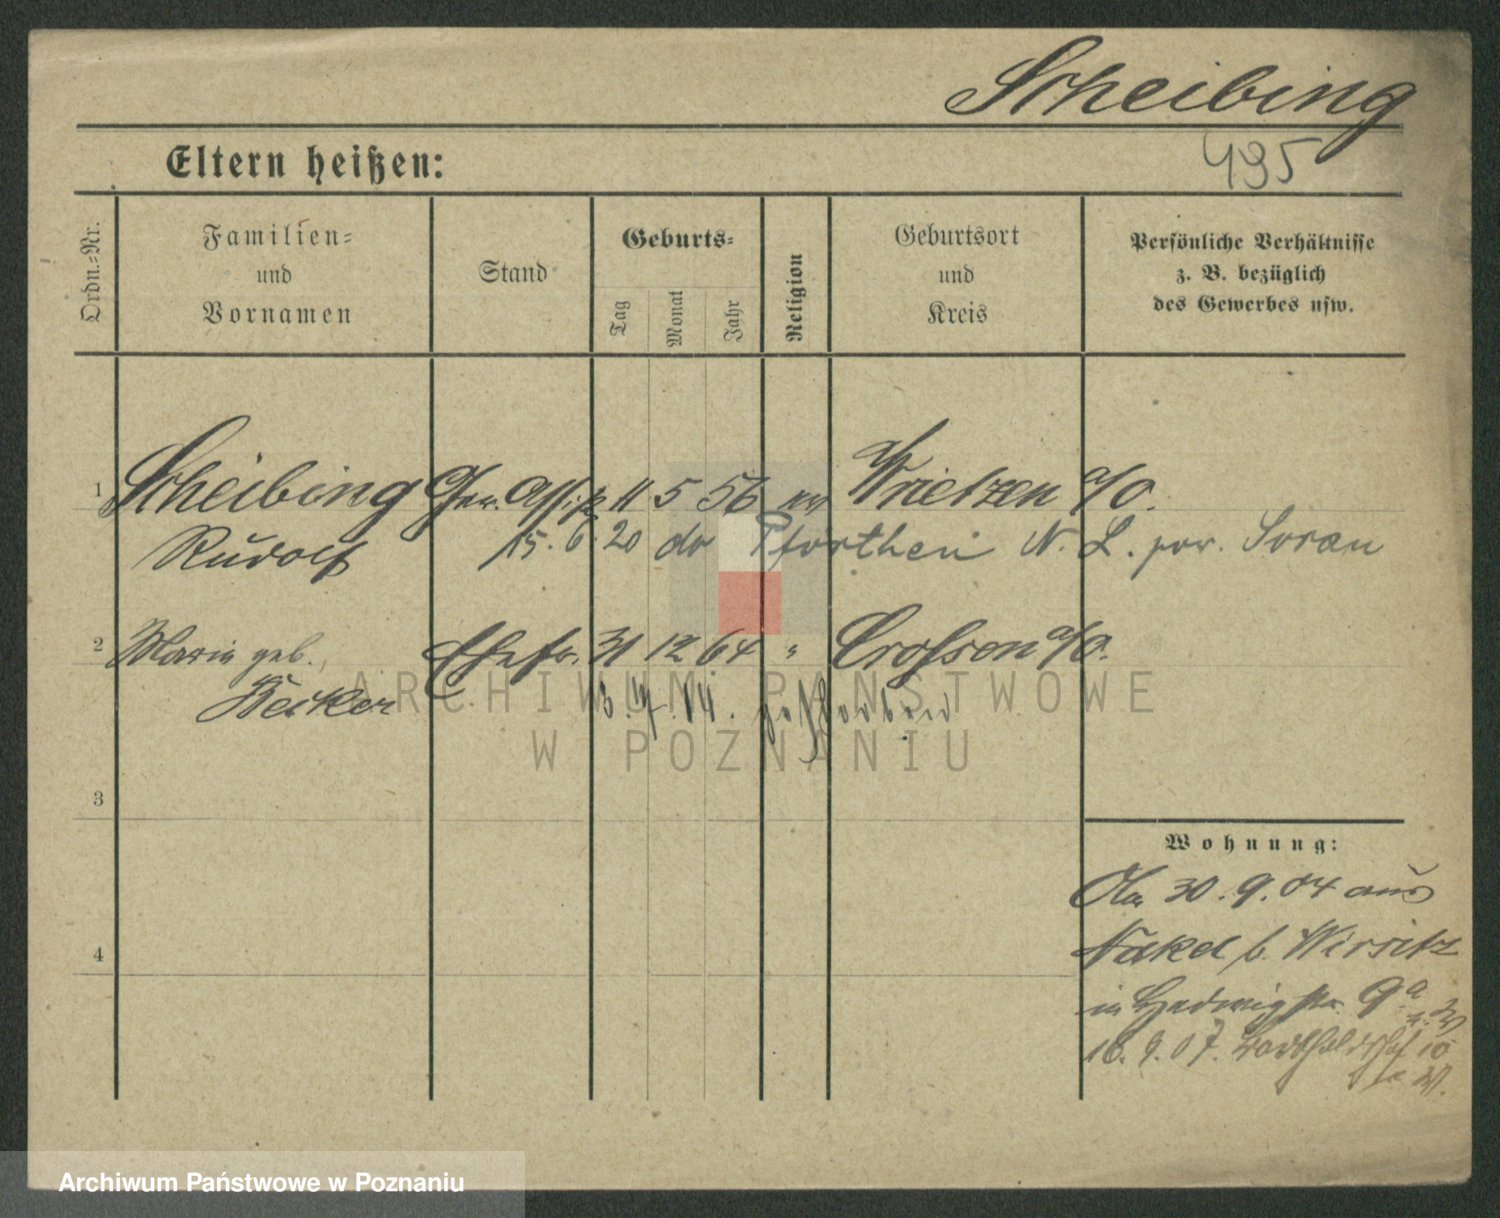 Scheibing
495
Eltern heißen:
Ordn.-Nr.
Familien-
und
Vornamen
Stand
Geburts-
Tag
Monat
Jahr
Religion
Geburtsort
und
Kreis
Persönliche Verhältnisse
z. B. bezüglich
des Gewerbes usw.
1 Scheibing Ger. Assist. 11 5 56 ev Wrietzen a/O.
Rudolf 15. 6. 20 do Pförthen N. L. Sorau
2 Marie geb. Ehefr. 31 12 64 " Crossen a/O.
Becker
3. 14. gestorben
3
4
Wohnung:
30. 9. 04 aus
Nakel b. Wirsitz
in Hedwigstr. 9a
18. 9. 07. 10
ARCHIWUM PAŃSTWOWE
W POZNANIU
Archiwum Państwowe w Poznaniu